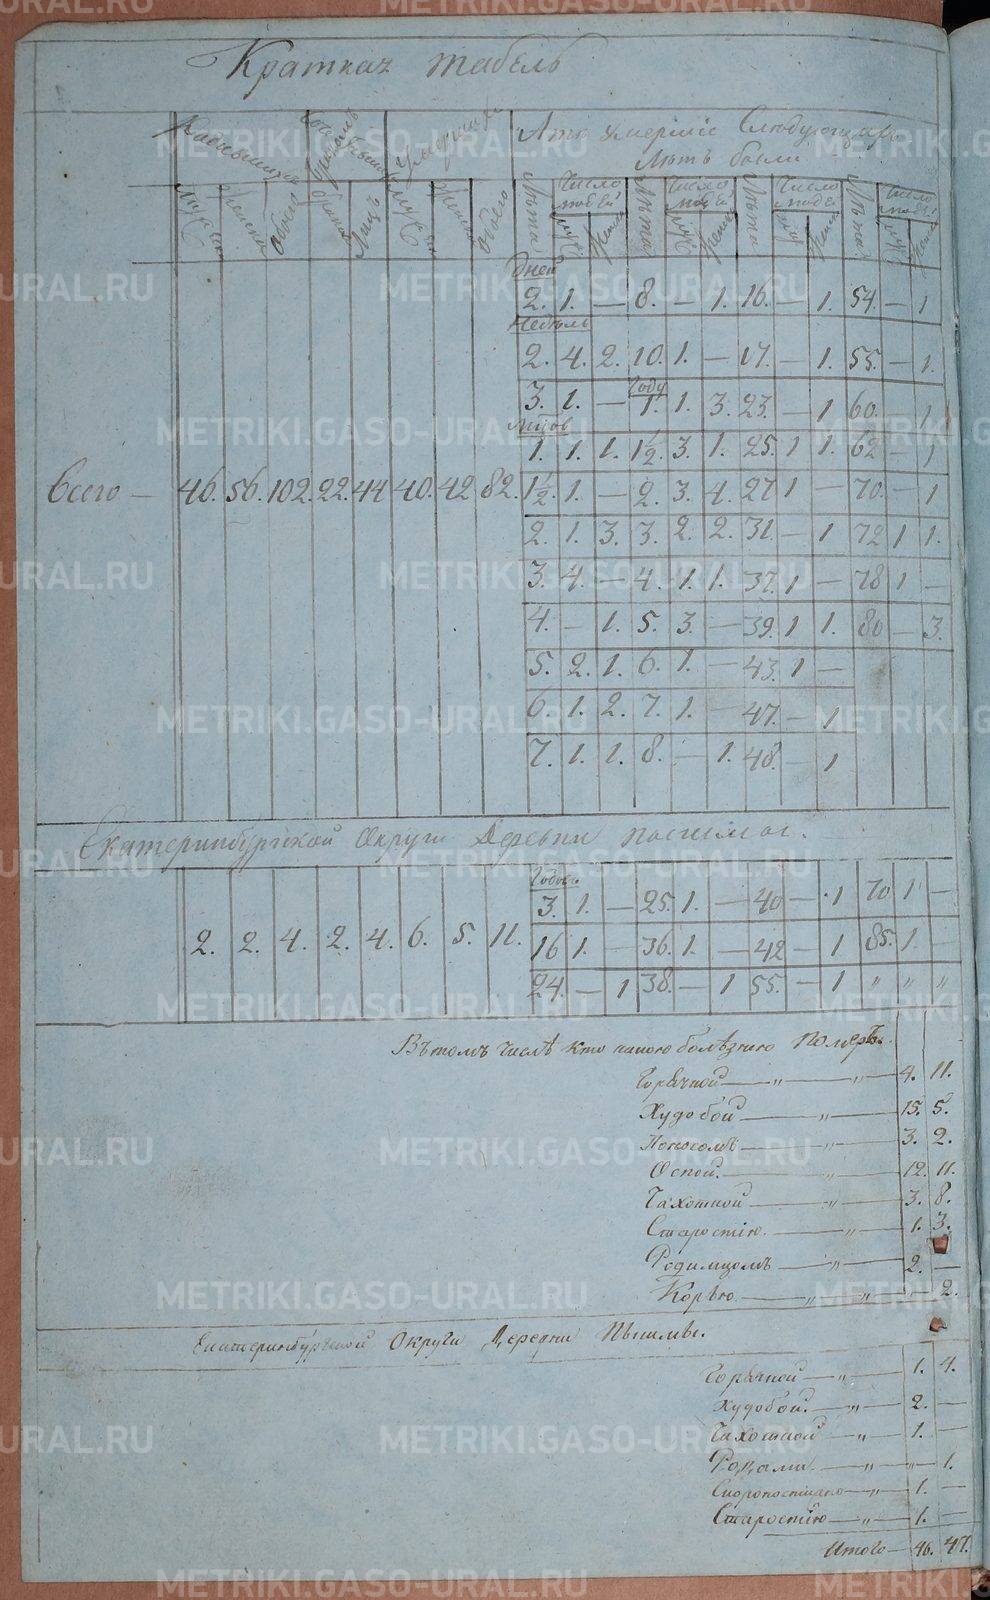 Краткая табель
А то умершіе Слѣдующихъ
Лѣтъ были
мужска женска обоего браков лицъ мужс женск обоего Лѣта Число людей Лѣта Число людей Лѣта Число людей Лѣта Число людей
муж жен муж жен муж жен муж жен
Дней
2. 1. — 8. — 1. 16. — 1. 54 — 1
Недѣль
2. 4. 2. 10. 1. — 17. — 1. 55. — 1.
Году
3. 1. — 1. 1. 3. 23. — 1 60. — 1
1. 1. 1. 1½. 3. 1. 25. 1 1. 62 — 1
Всего — 46. 56. 102. 22. 44 40. 42. 82. 1½. 1. — 2. 3. 4. 27 1 — 70. — 1
2. 1. 3. 3. 2. 2. 31. — 1 72 1 1.
3. 4. — 4. 1. 1. 37. 1 — 78 1 —
4. — 1. 5. 3. — 39. 1 1. 80 — 3.
5. 2. 1. 6. 1. — 43. 1 —
6. 1. 2. 7. 1. — 47. — 1
7. 1. 1. 8. — 1. 48. — 1
Екатеринбургской Округи Деревни
Годов
3. 1. — 25. 1. — 40 — 1 70 1 —
2. 2. 4. 2. 4. 6. 5. 11. 16 1. — 36. 1. — 42 — 1 85. 1. —
24. — 1 38. — 1 55. — 1 " " "
Въ томъ числѣ кто какою болѣзнію Померъ.
Горячкой — " — " — 4. 11.
Худобой — " — 15. 5.
Поносомъ — " — 3. 2.
Оспой. — " — 12. 11.
Чахоткой — " — 3. 8.
Старостію. — " — 1. 3.
Родимцомъ — " — 2. —
Корью — " — " — " — 2.
Екатеринбургской Округи Деревни Пышмы.
Горячкой — " — 1. 4.
Худобой. — " — 2. —
Чахоткой — " — 1. —
Родами. — " — " — 1.
Скоропостижно — " — 1. —
Старостію — " — 1. —
Итого — 46. 47.
METRIKI.GASO-URAL.RU